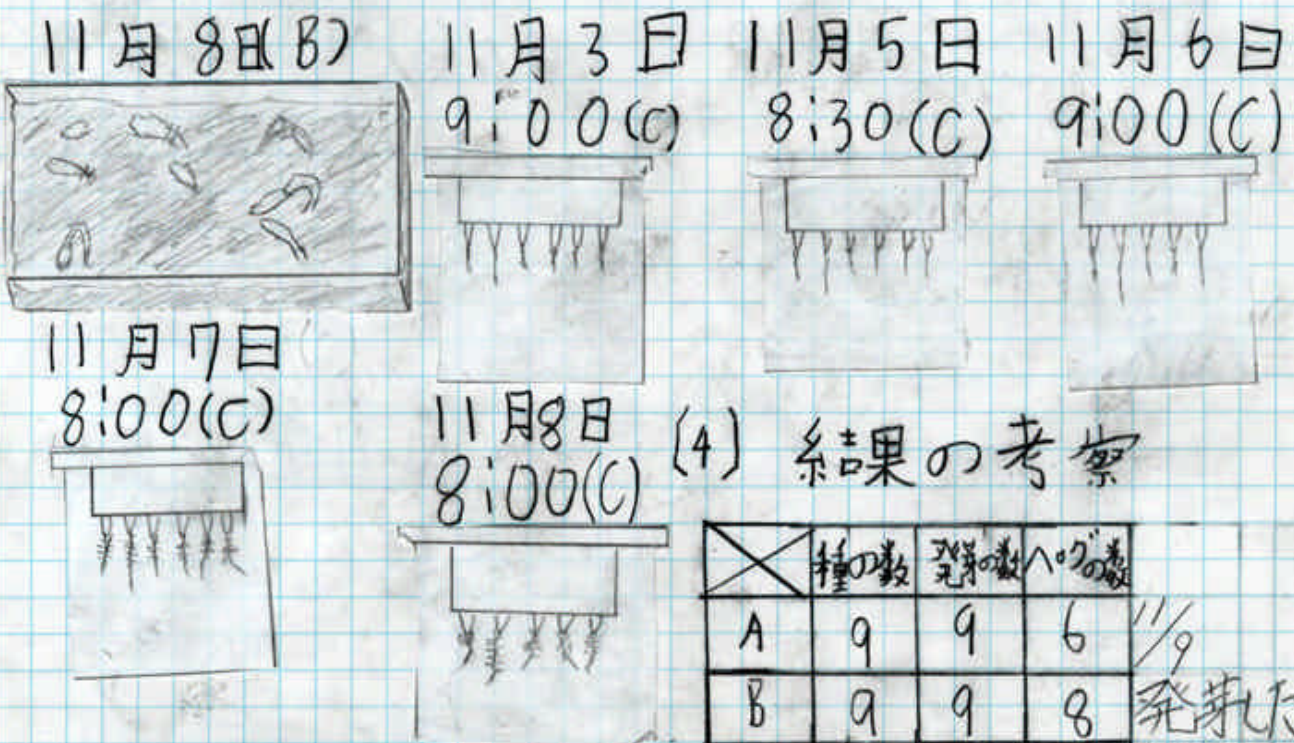 11月8日(B)
11月3日
9:00(C)
11月5日
8:30(C)
11月6日
9:00(C)
11月7日
8:00(C)
11月8日
8:00(C)
(4) 結果の考察
種の数 発芽の数 ペグの数
A 9 9 6
B 9 9 8
11/9
発芽した